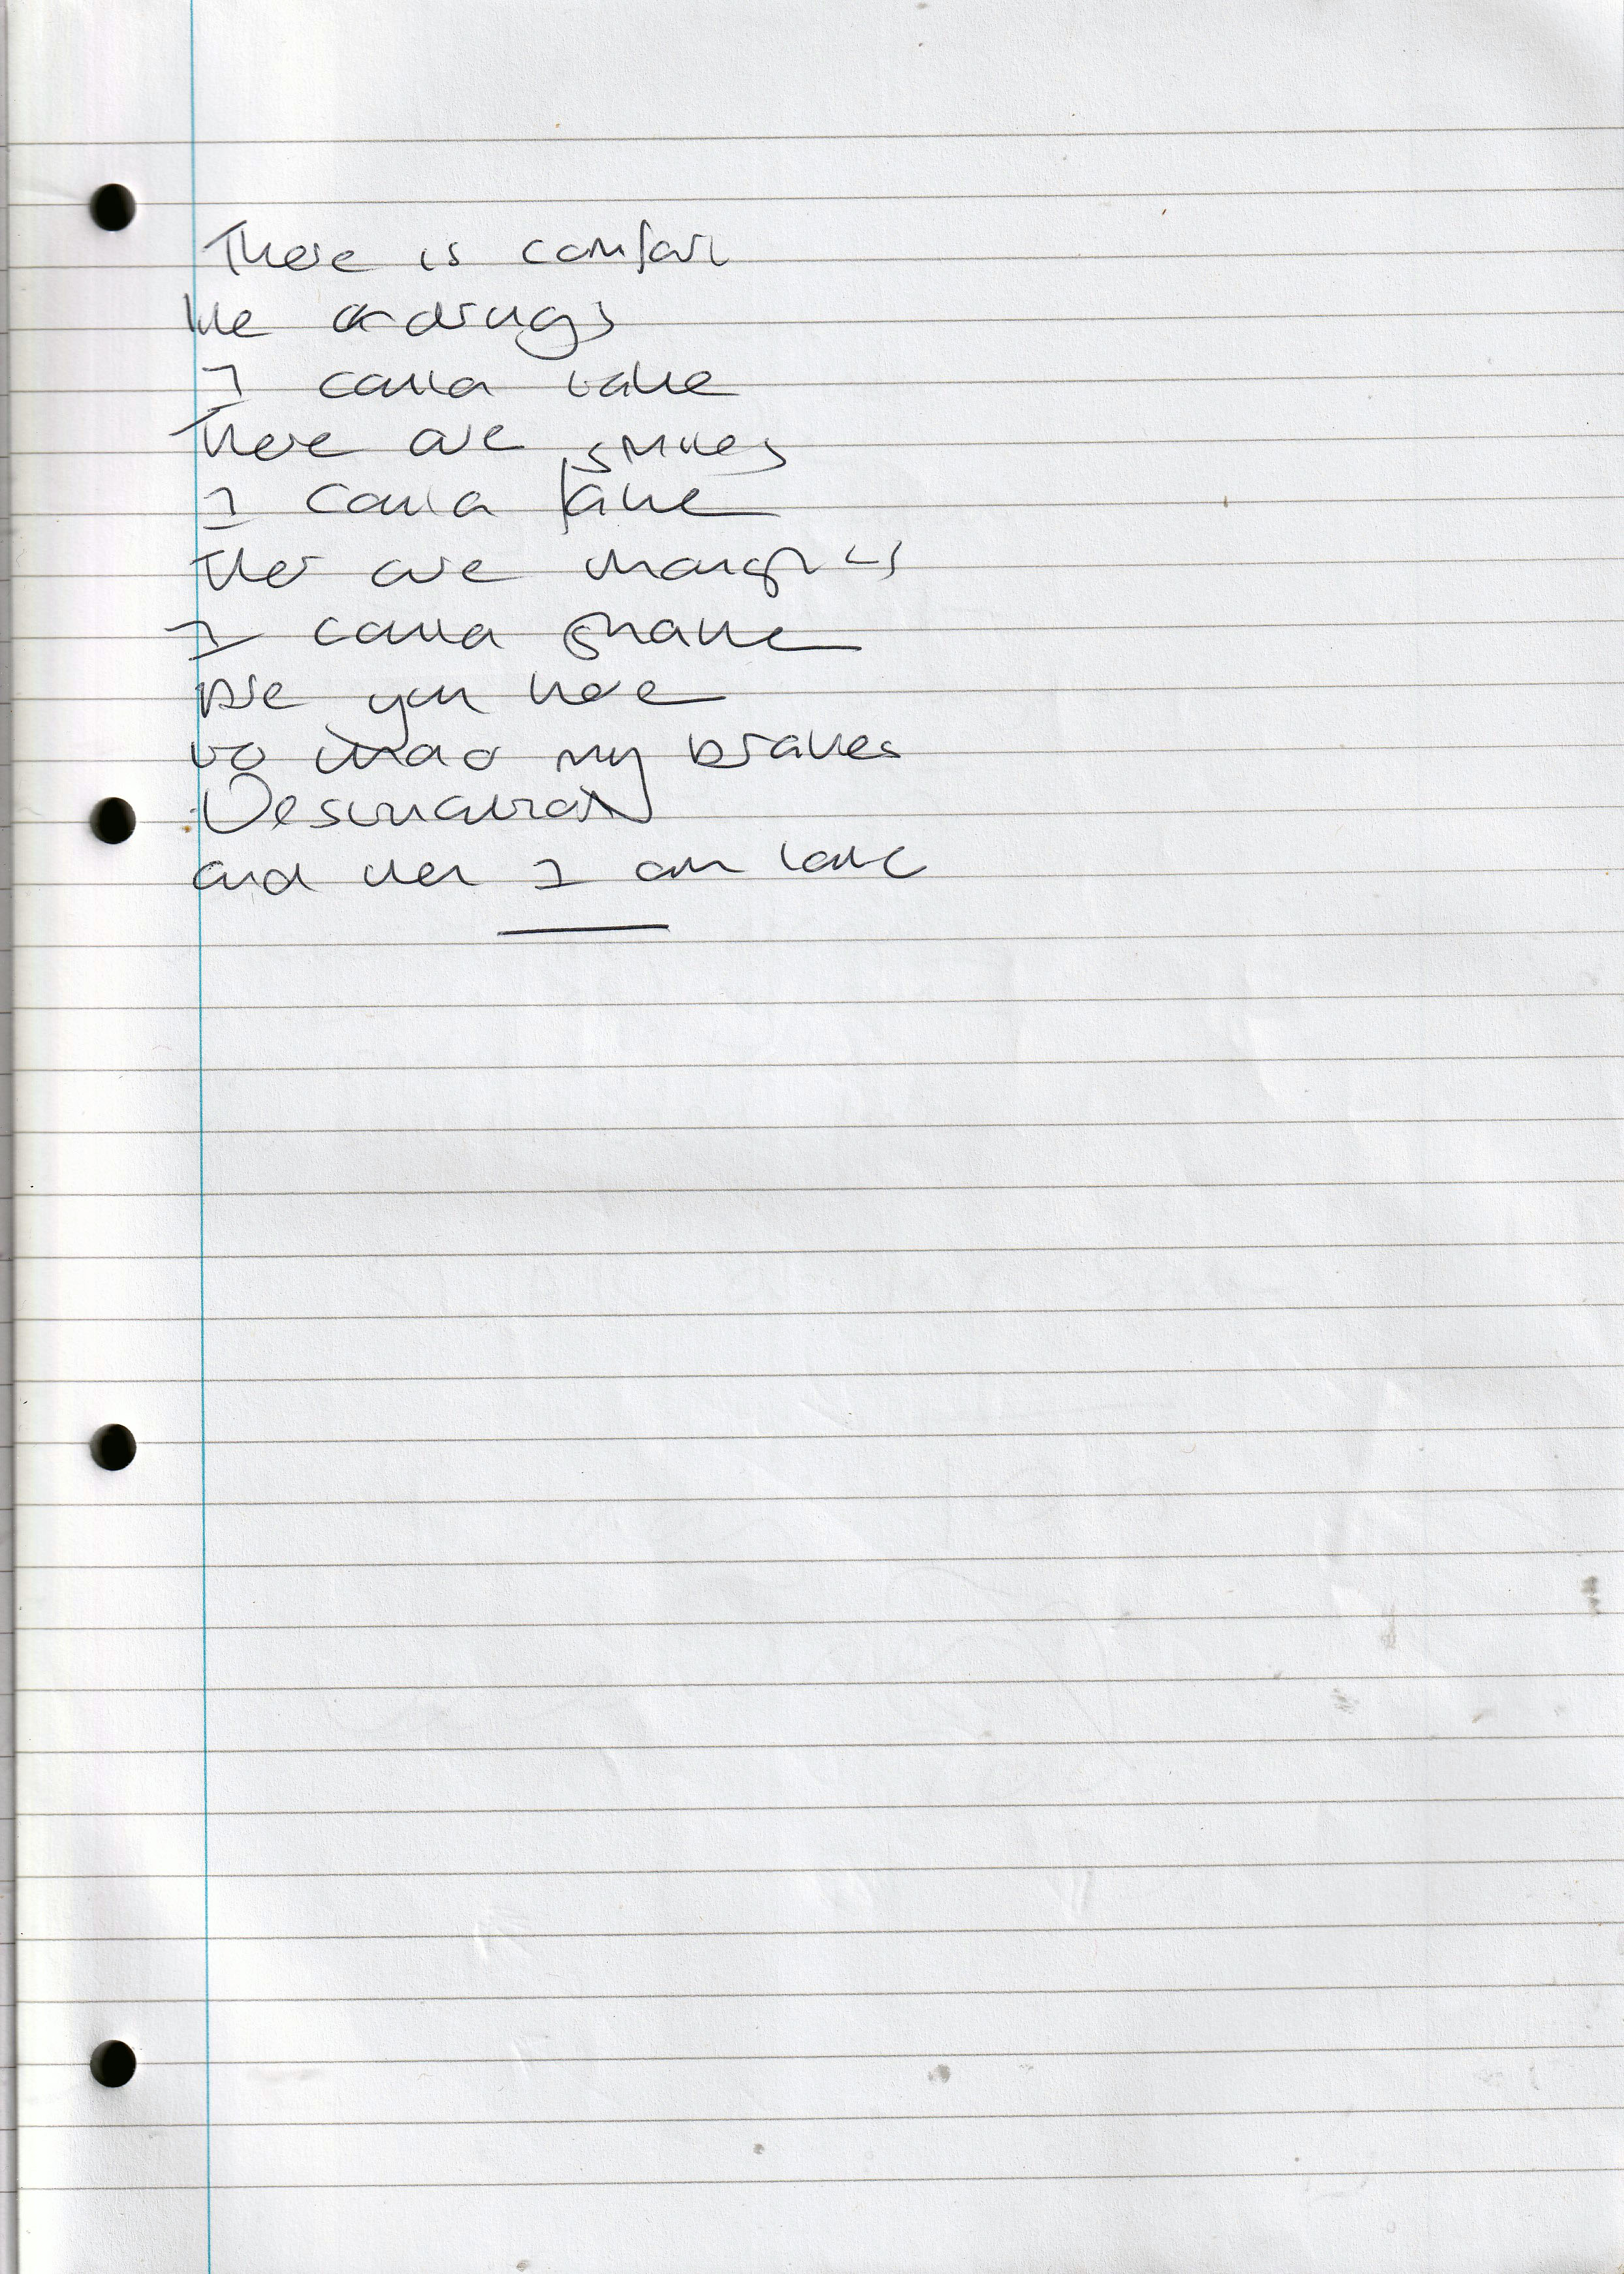 There is comfort
like a drugs
I could take
There are smiles
I could fake
Ther are thoughts
I could shake
But you have
to find my brakes
Destination
and then I am late